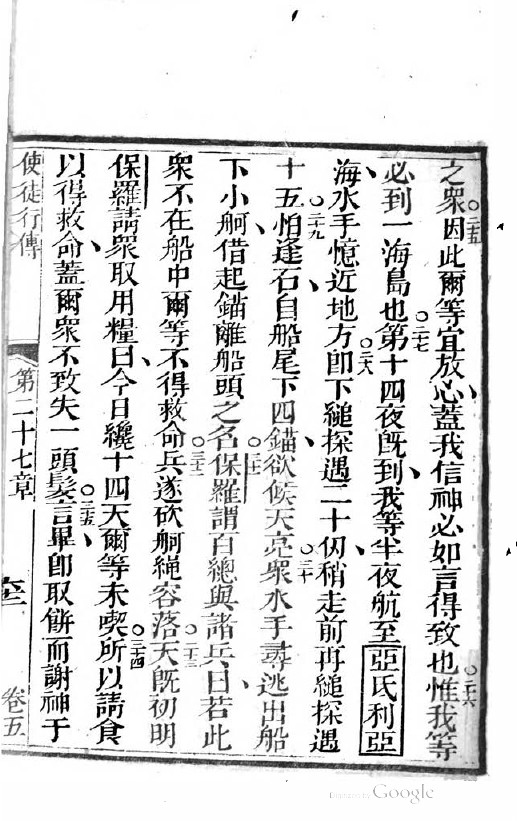 之衆○二五因此爾等宜放心蓋我信神必如言得致也○二六惟我等
必到一海島也○二七第十四夜既到我等半夜航至亞氏利亞
海水手憶近地方○二八即下縋探遇二十仭稍走前再縋探遇
十五○二九怕逢石自船尾下四錨欲候天亮○三十衆水手尋逃出船
下小舸借起錨離船頭之名○三一保羅謂百總與諸兵曰若此
衆不在船中爾等不得救命○三二兵遂砍舸繩容落○三三天既初明
保羅請衆取用糧曰今日纔十四天爾等未喫○三四所以請食
以得救命蓋爾衆不致失一頭髮○三五言畢即取餅而謝神于
使徒行傳 第二十七章 卷五
Digitized by Google